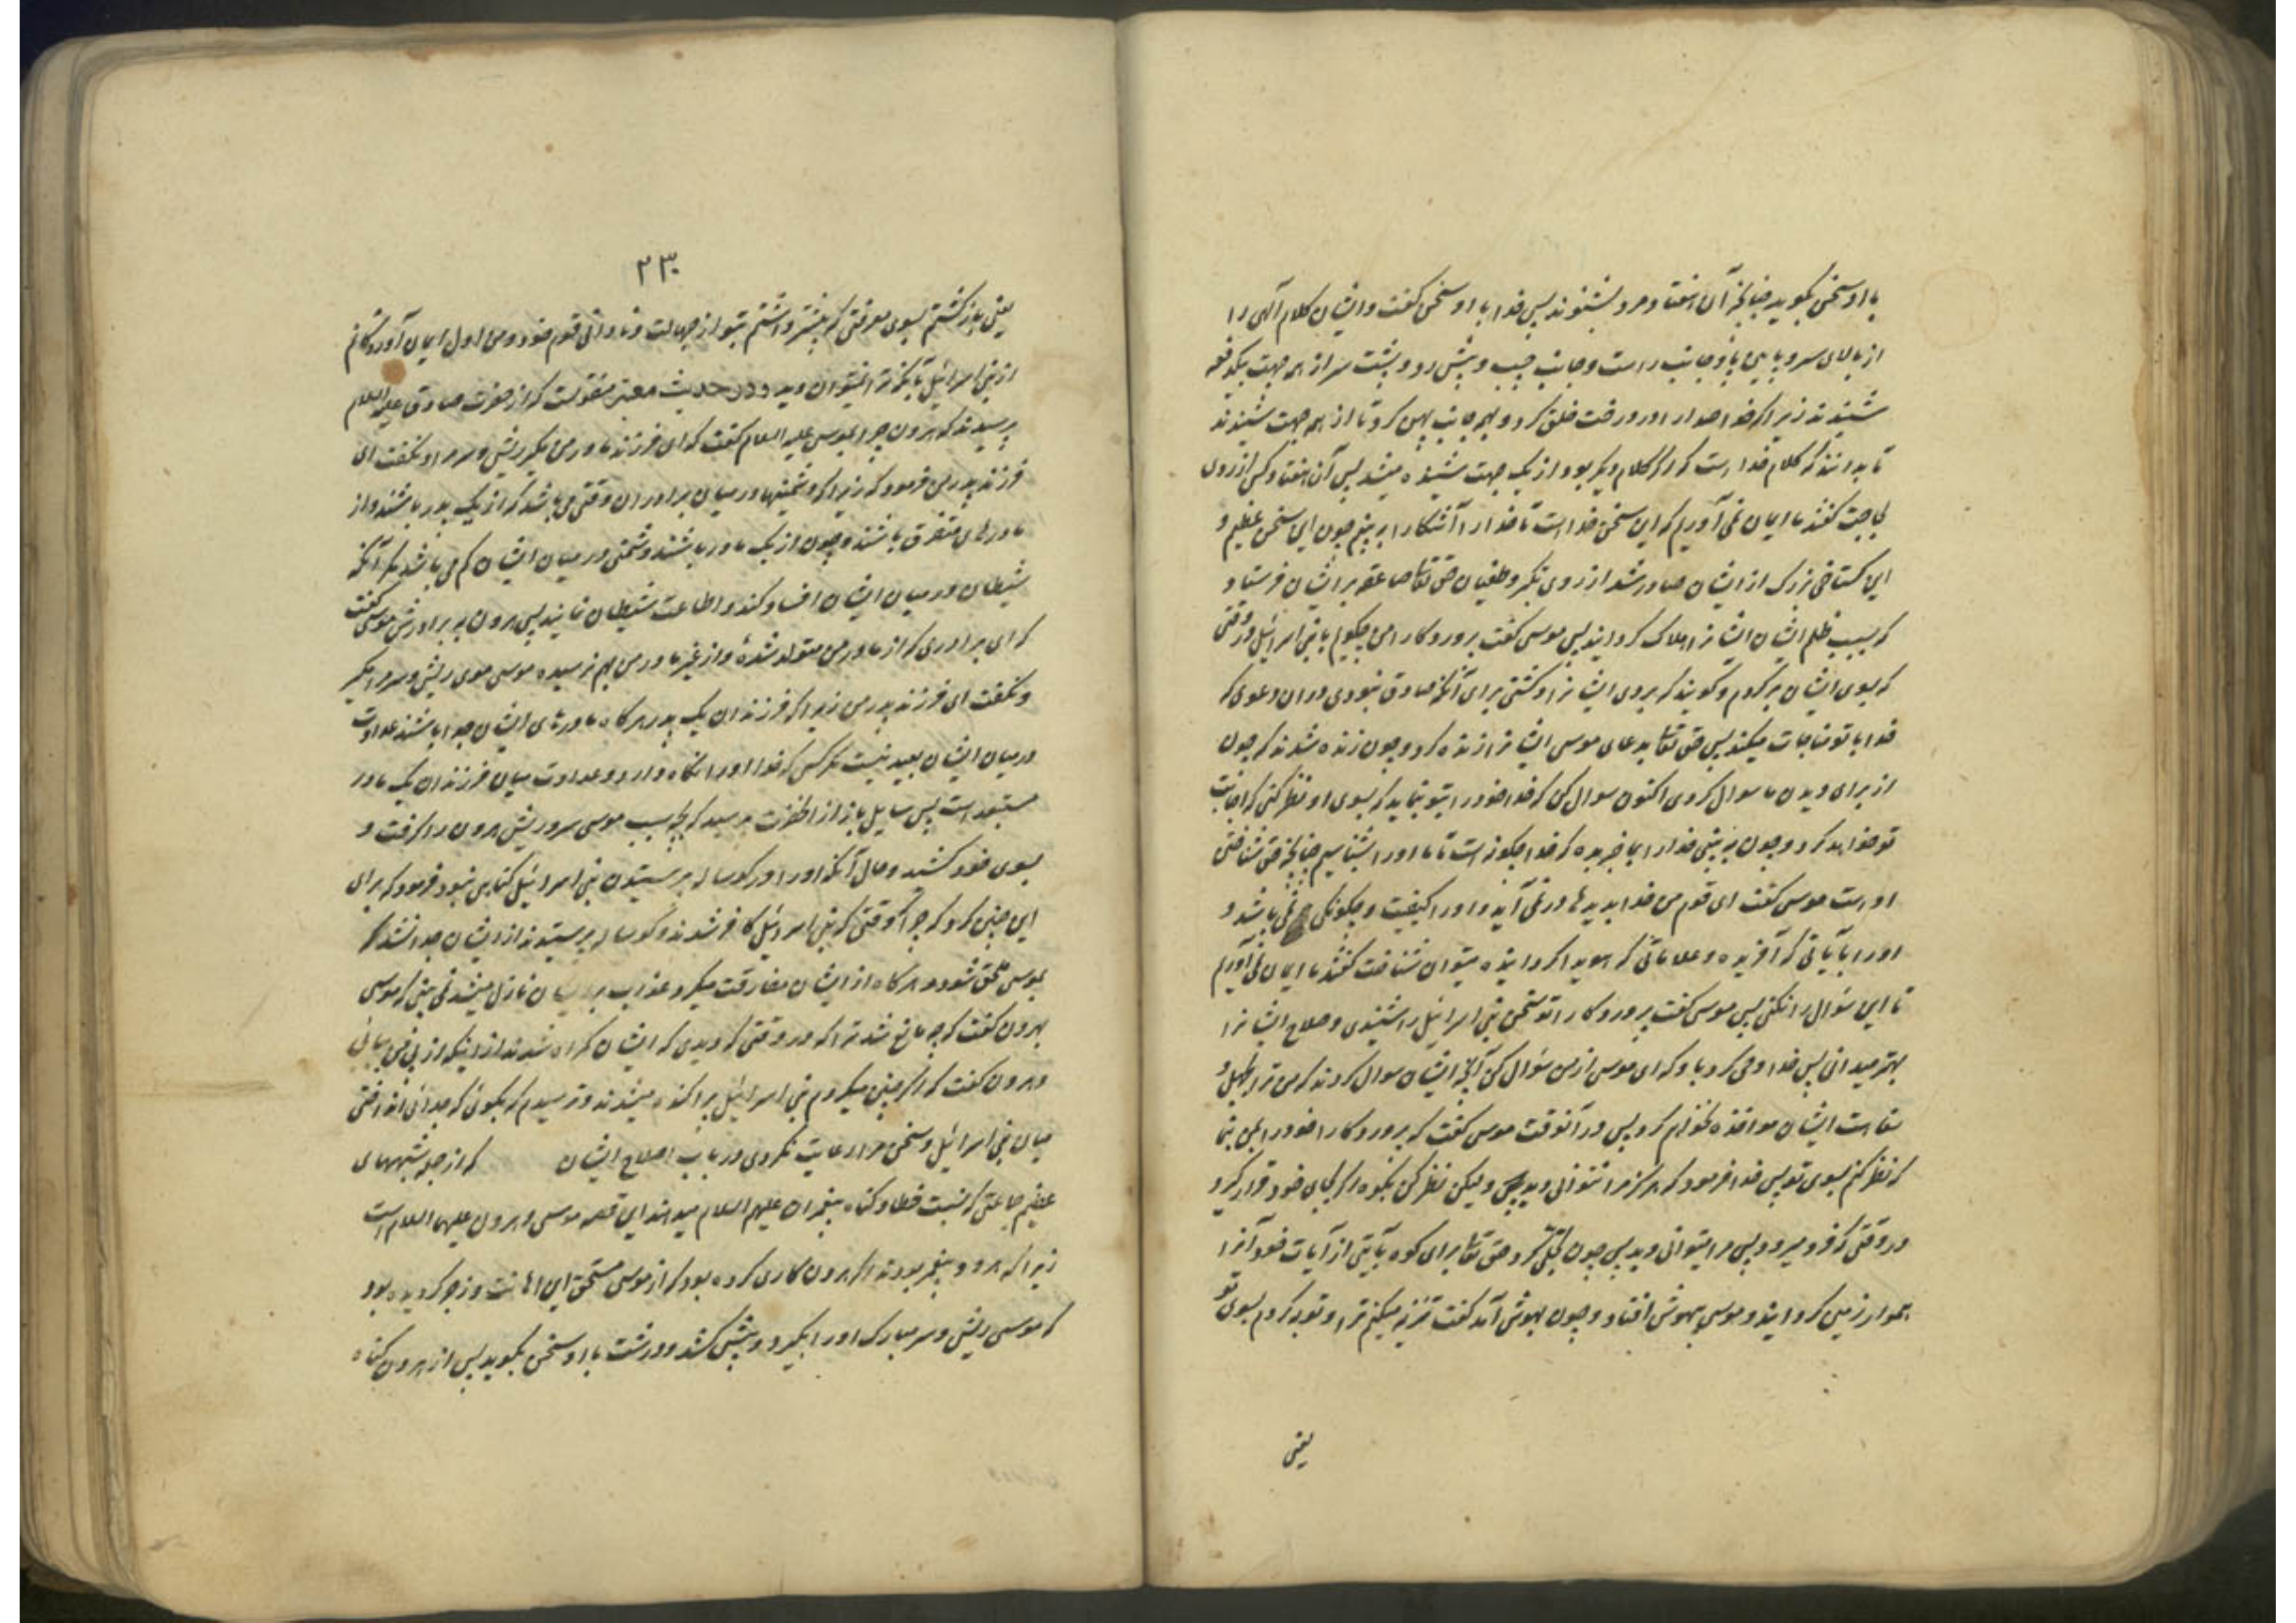 با او سخن بگوید چنانچه آن هفتاد مرد بشنوند پس خدا با او سخن گفت و ایشان کلام آلهی را
از بالای سر و پایین پا و جانب راست و جانب چپ و پیش رو و پشت سر از همه جهت بیکدفعه
شنیدند زیرا که خدا صدا را در درخت خلق کرد و بهر جانب پهن کرد تا از همه جهت شنیدند
تا بدانند که کلام خدا است که اگر کلام دیگر بود از یک جهت شنیده میشد پس آن هفتاد کس از روی
لجاجت گفتند ما ایمان نمی آوریم که این سخن خدا است تا خدا را آشکارا به بینیم چون این سخن عظیم و
این گستاخی بزرگ از ایشان صادر شد از روی تکبر و طغیان حق تعالی صاعقه بر ایشان فرستاد
که بسبب ظلم ایشان ایشانرا هلاک گردانید پس موسی گفت پروردگارا من چگویم با بنی اسرائیل در وقتی
که بسوی ایشان برگردم و گویند که بردی ایشانرا و کشتی برای آنکه صادق نبودی در آن دعوی که
خدا با تو مناجات میکند پس حق تعالی بدعای موسی ایشانرا زنده کرد و چون زنده شدند گفتند چون
از برای دیدن ما سوال کردی اکنون سوال کن که خدا خود را بتو نماید که بسوی او نظر کنی که اجابت
تو خواهد کرد و چون به بینی خدا را بما خبر بده که خدا چگونه است تا ما او را بشناسیم چنانچه حق شناختن
اوست موسی گفت ای قوم من خدا بدیدها در نمی آید و او را کیفیت و چگونگی نمی باشد و
او را بآیاتی که آفریده و علاماتی که هویدا گردانیده میتوان شناخت گفتند ما ایمان نمی آوریم
تا این سؤال را نکنی پس موسی گفت پروردگارا تو سخن بنی اسرائیل را شنیدی و صلاح ایشانرا
بهتر میدانی پس خدا وحی کرد باو که ای موسی از من سؤال کن آنچه ایشان سوال کردند که من ترا بجهل و
سفاهت ایشان مواخذه نخواهم کرد پس در آنوقت موسی گفت که پروردگارا خود را بمن بنما
که نظر کنم بسوی تو پس خدا فرمود که هرگز مرا نتوانی دید ولیکن نظر کن بکوه اگر بجای خود قرار گیرد
در وقتی که فرو میرود پس مرا میتوانی دید پس چون تجلی کرد حق تعالی برای کوه بآیتی از آیات خود آنرا
بهموار زمین گردانید و موسی بیهوش افتاد و چون بهوش آمد گفت تنزیه میکنم ترا و توبه کردم بسوی تو
یعنی
٢٣٠
یعنی بازگشتم بسوی معرفتی که بیشتر داشتم بتو از جهالت و نادانی قوم خود و من اول ایمان آورندگانم
از بنی اسرائیل بآنکه ترا نمیتوان دید و در حدیث معتبر منقولست که از حضرت صادق علیه السلام
پرسیدند که هرون چرا بموسی علیه السلام گفت که ای فرزند مادر من مگیر ریش و سر مرا و نگفت ای
فرزند پدر من فرمود که زیرا که دشمنیها در میان برادران وقتی می باشد که از یک پدر باشند و از
مادرهای متفرق باشند و چون از یک مادر باشند دشمنی در میان ایشان کم می باشد مگر آنکه
شیطان در میان ایشان افساد کند و اطاعت شیطان نمایند پس هرون به برادرش موسی گفت
که ای برادری که از مادر من متولد شدهٔ و از غیر مادر من بهم نرسیده موسی موی ریش و سر مرا مگیر
و نگفت ای فرزند پدر من زیرا که فرزندان یک پدر هرگاه مادرهای ایشان جدا باشند عداوت
در میان ایشان بعید نیست مگر کسی که خدا او را نگاه دارد و عداوت میان فرزندان یک مادر
مستبعد است پس سایل باز از آنحضرت پرسید که بچه سبب موسی سر و ریش هرون را گرفت و
بسوی خود کشید و حال آنکه او را در گوساله پرستیدن بنی اسرائیل گناهی نبود فرمود که برای
این چنین کرد که چرا وقتی که بنی اسرائیل کافر شدند و گوساله پرستیدند از ایشان جدا نشد که
بموسی ملحق شود و هرگاه از ایشان مفارقت میکرد عذاب بر ایشان نازل میشد نمی بینی که موسی
بهرون گفت که چه مانع شد ترا که در وقتی که دیدی که ایشان گمراه شدند از اینکه از پی من بیائی
و هرون گفت که اگر چنین میکردم بنی اسرائیل پراکنده میشدند و ترسیدم که بگوئی که جدائی انداختی
میان بنی اسرائیل و سخن مرا رعایت نکردی در باب اصلاح ایشان که از جمله شبهه های
عظیم جماعتی که نسبت خطا و گناه به پیغمبران علیهم السلام میدهند این قصه موسی و هرون علیهما السلام است
زیرا که هر دو پیغمبر بودند اگر هرون کاری کرده بود که از موسی مستحق این اهانت و زجر گردیده بود
که موسی ریش و سر مبارک او را بگیرد و پیش کشد و درشت با او سخن بگوید پس از هرون گناه